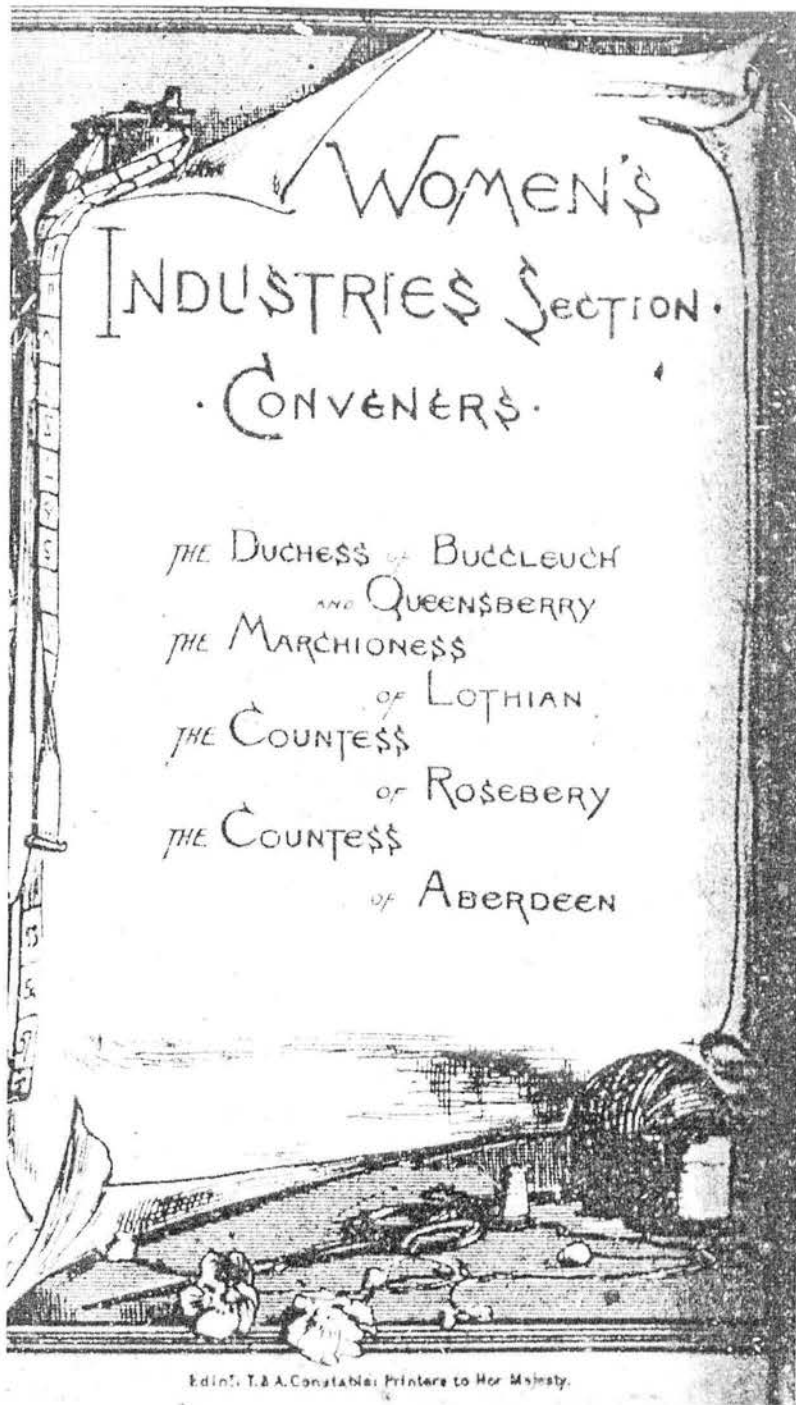 WOMEN'S
INDUSTRIES SECTION ·
· CONVENERS ·
THE DUCHESS of BUCCLEUCH
AND QUEENSBERRY
THE MARCHIONESS
OF LOTHIAN
THE COUNTESS
OF ROSEBERY
THE COUNTESS
OF ABERDEEN
Edinr. T. & A. Constable: Printers to Her Majesty.